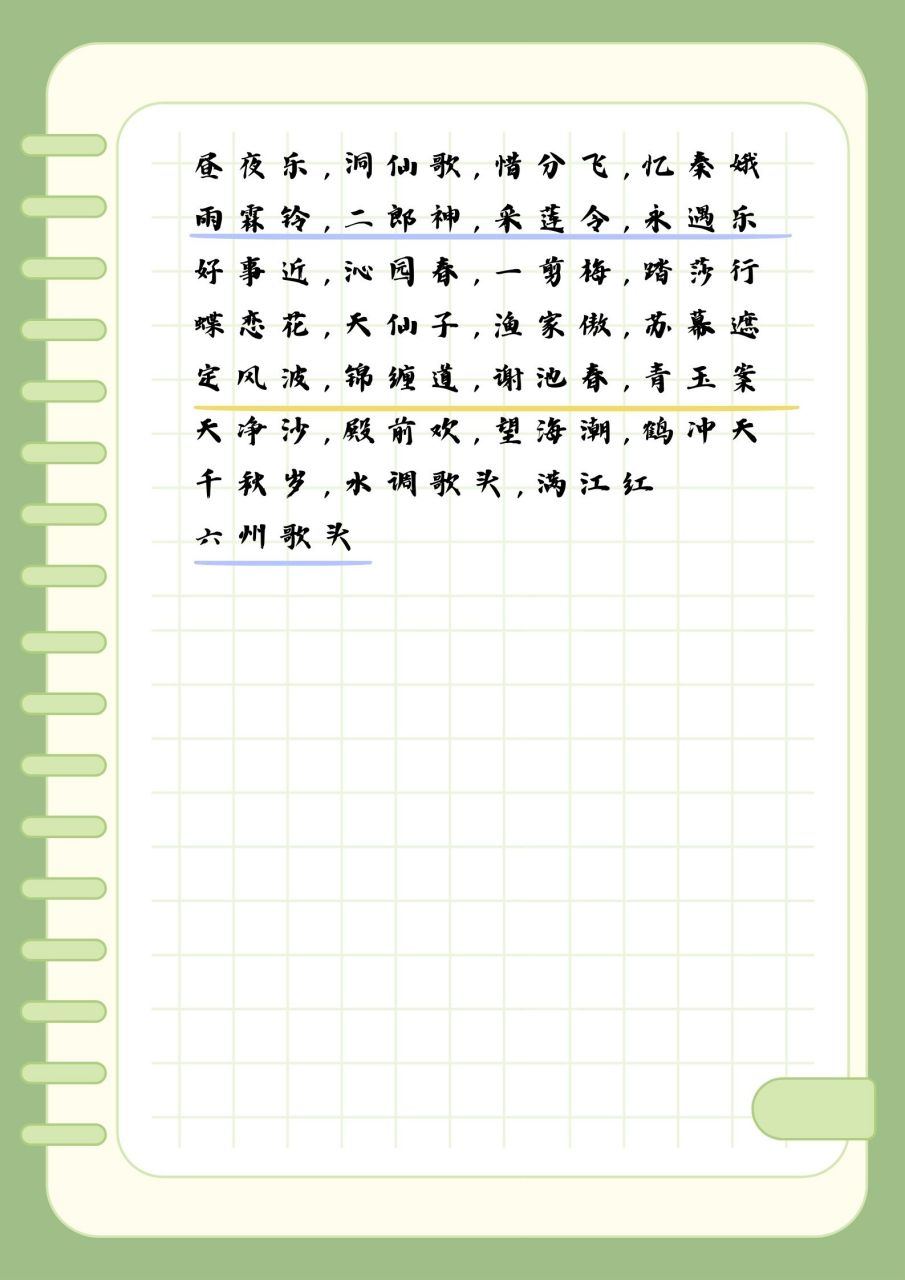 昼夜乐,洞仙歌,惜分飞,忆秦娥
雨霖铃,二郎神,采莲令,永遇乐
好事近,沁园春,一剪梅,踏莎行
蝶恋花,天仙子,渔家傲,苏幕遮
定风波,锦缠道,谢池春,青玉案
天净沙,殿前欢,望海潮,鹤冲天
千秋岁,水调歌头,满江红
六州歌头